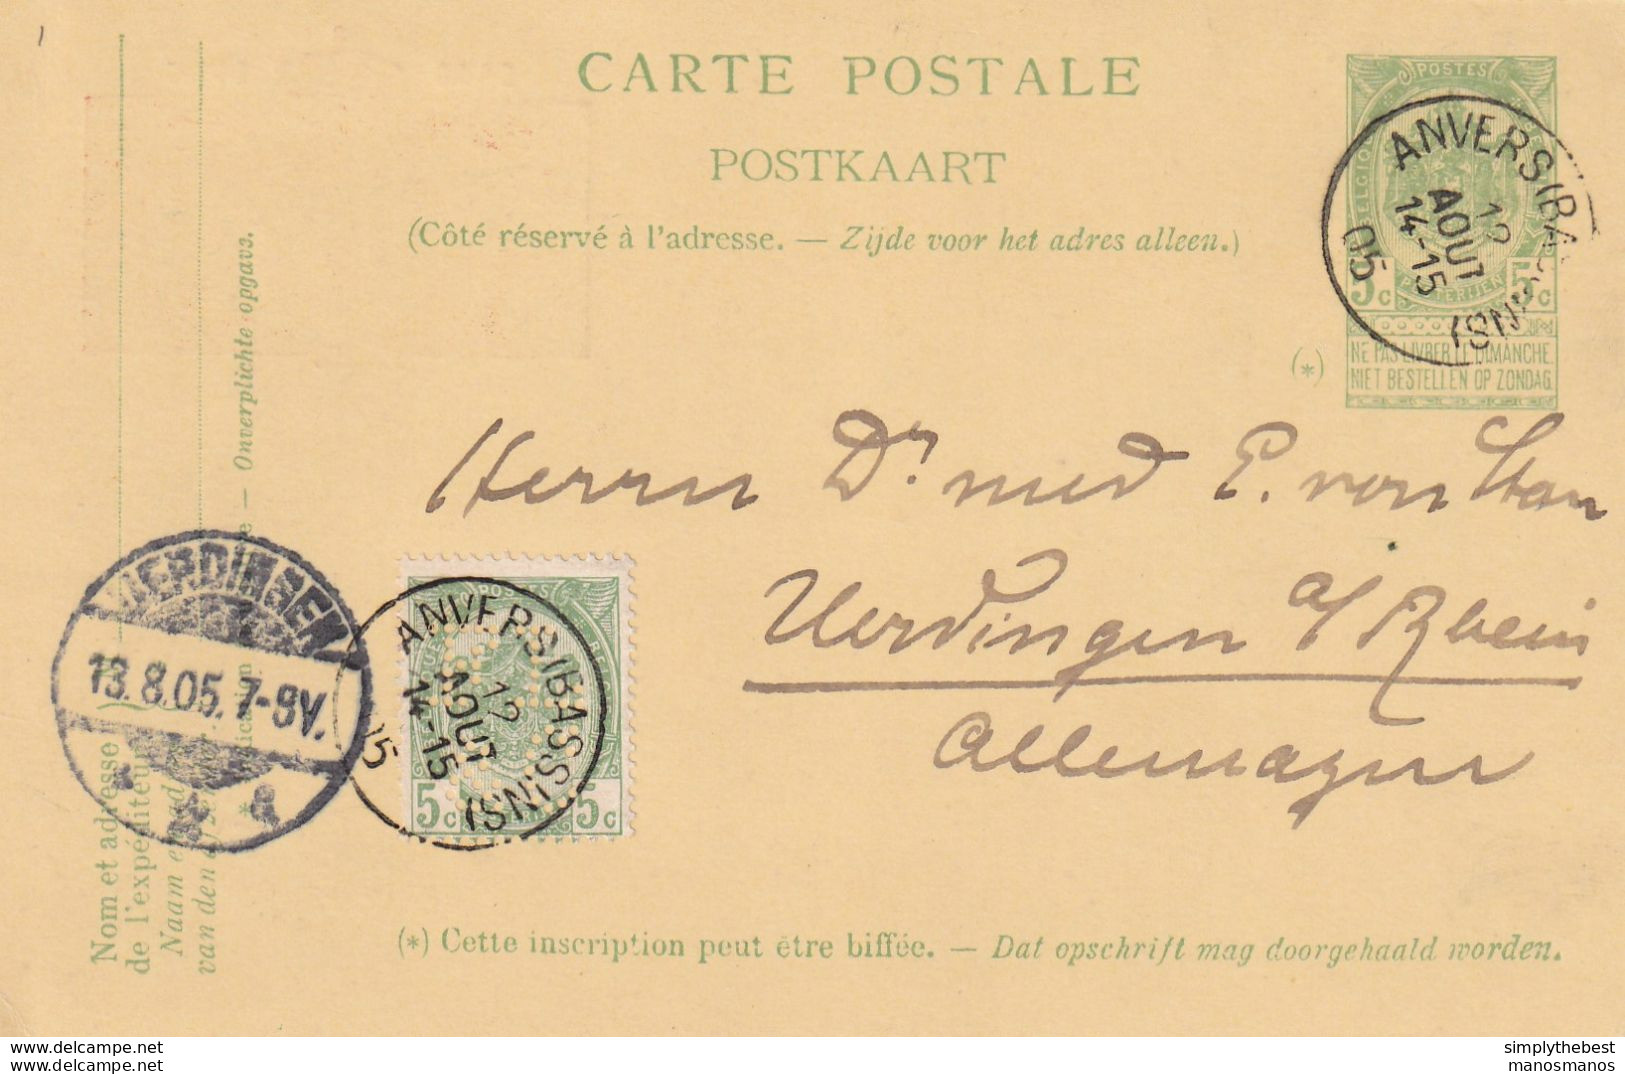 CARTE POSTALE
POSTKAART
(Côté réservé à l'adresse. — Zijde voor het adres alleen.)
POSTES
BELGIQUE
5c 5c
POSTERIJEN
NE PAS LIVRER LE DIMANCHE
NIET BESTELLEN OP ZONDAG
(*)
ANVERS (BASSINS)
12
AOUT
14-15
05
Herrn Dr. med E. von
Uerdingen a/Rhein
Allemagne
UERDINGEN
13.8.05. 7-8V.
POSTES
5c 5c
ANVERS (BASSINS)
12
AOUT
14-15
05
Nom et adresse
de l'expéditeur
Naam en
van den
— Onverplichte opgave.
(*) Cette inscription peut être biffée. — Dat opschrift mag doorgehaald worden.
www.delcampe.net
simplythebest
manosmanos